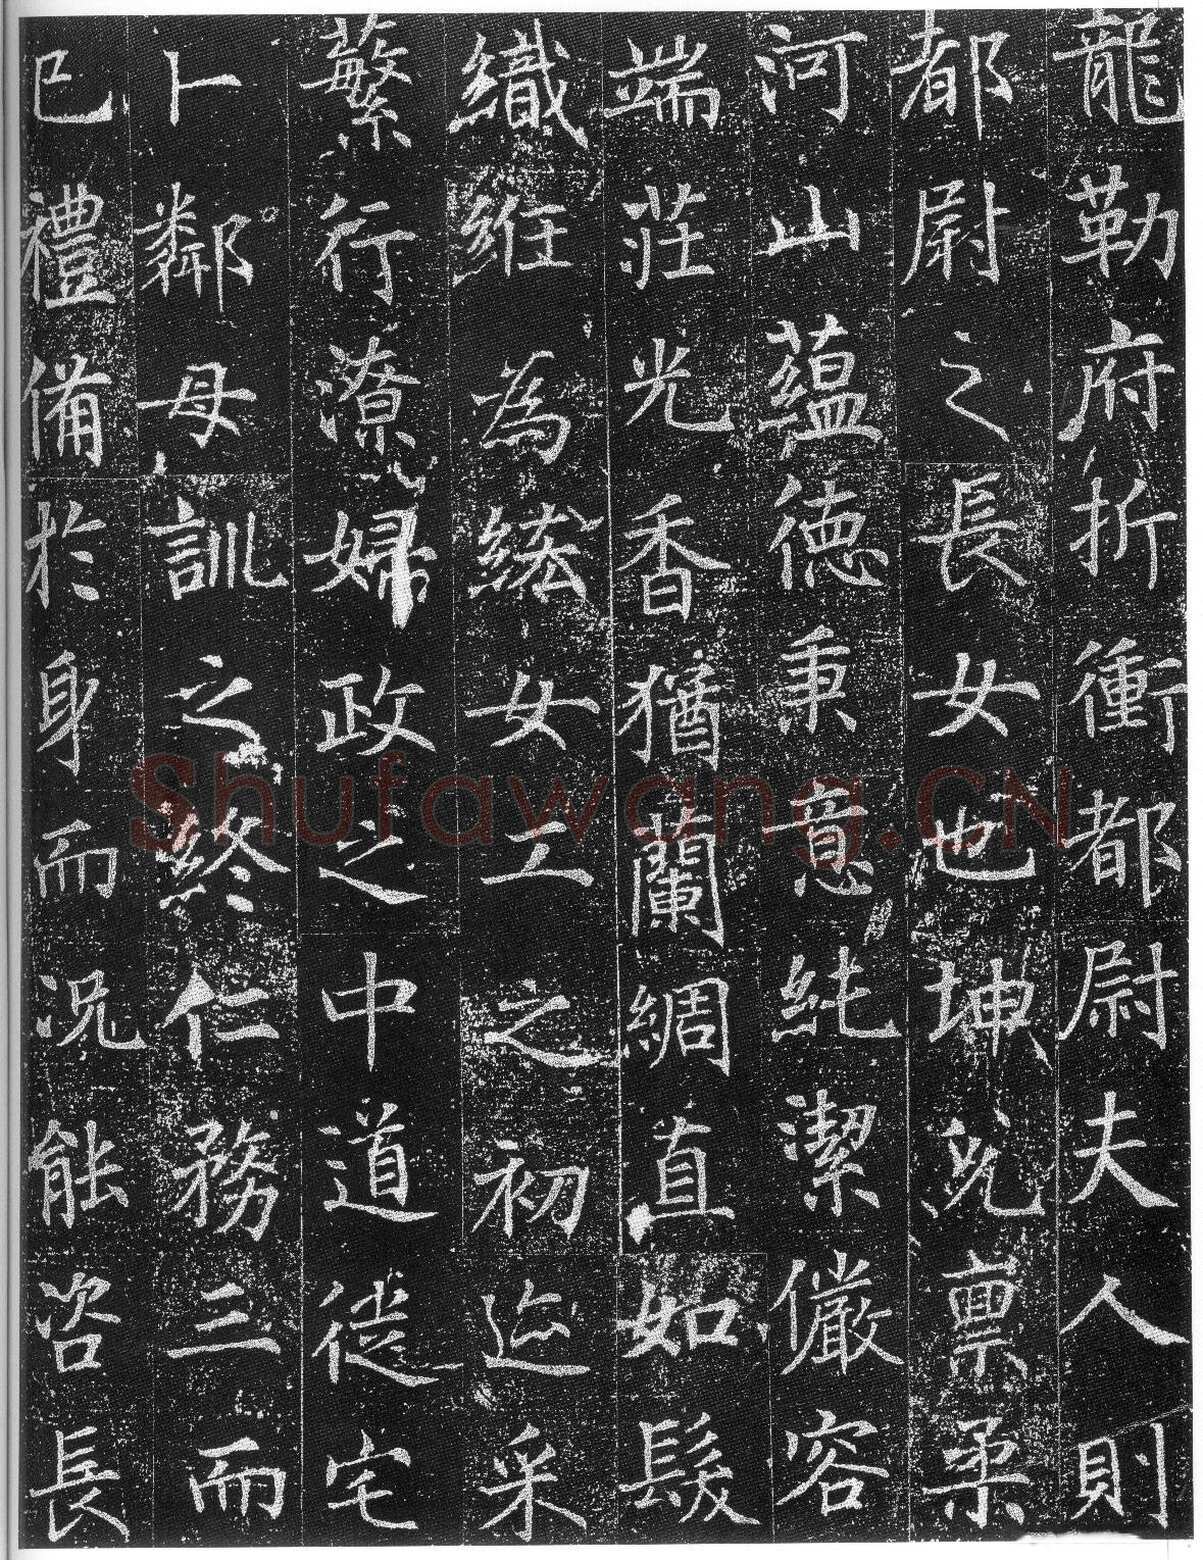 龍勒府折衝都尉夫人則
都尉之長女也坤兌禀柔
河山蘊德秉意純潔儼容
端莊光香猶蘭綢直如髮
織絍為綋女工之初迹采
蘩行潦婦政之中道徙宅
卜鄰母訓之終仁務三而
已禮備於身而況能咨長
Shufawang.CN